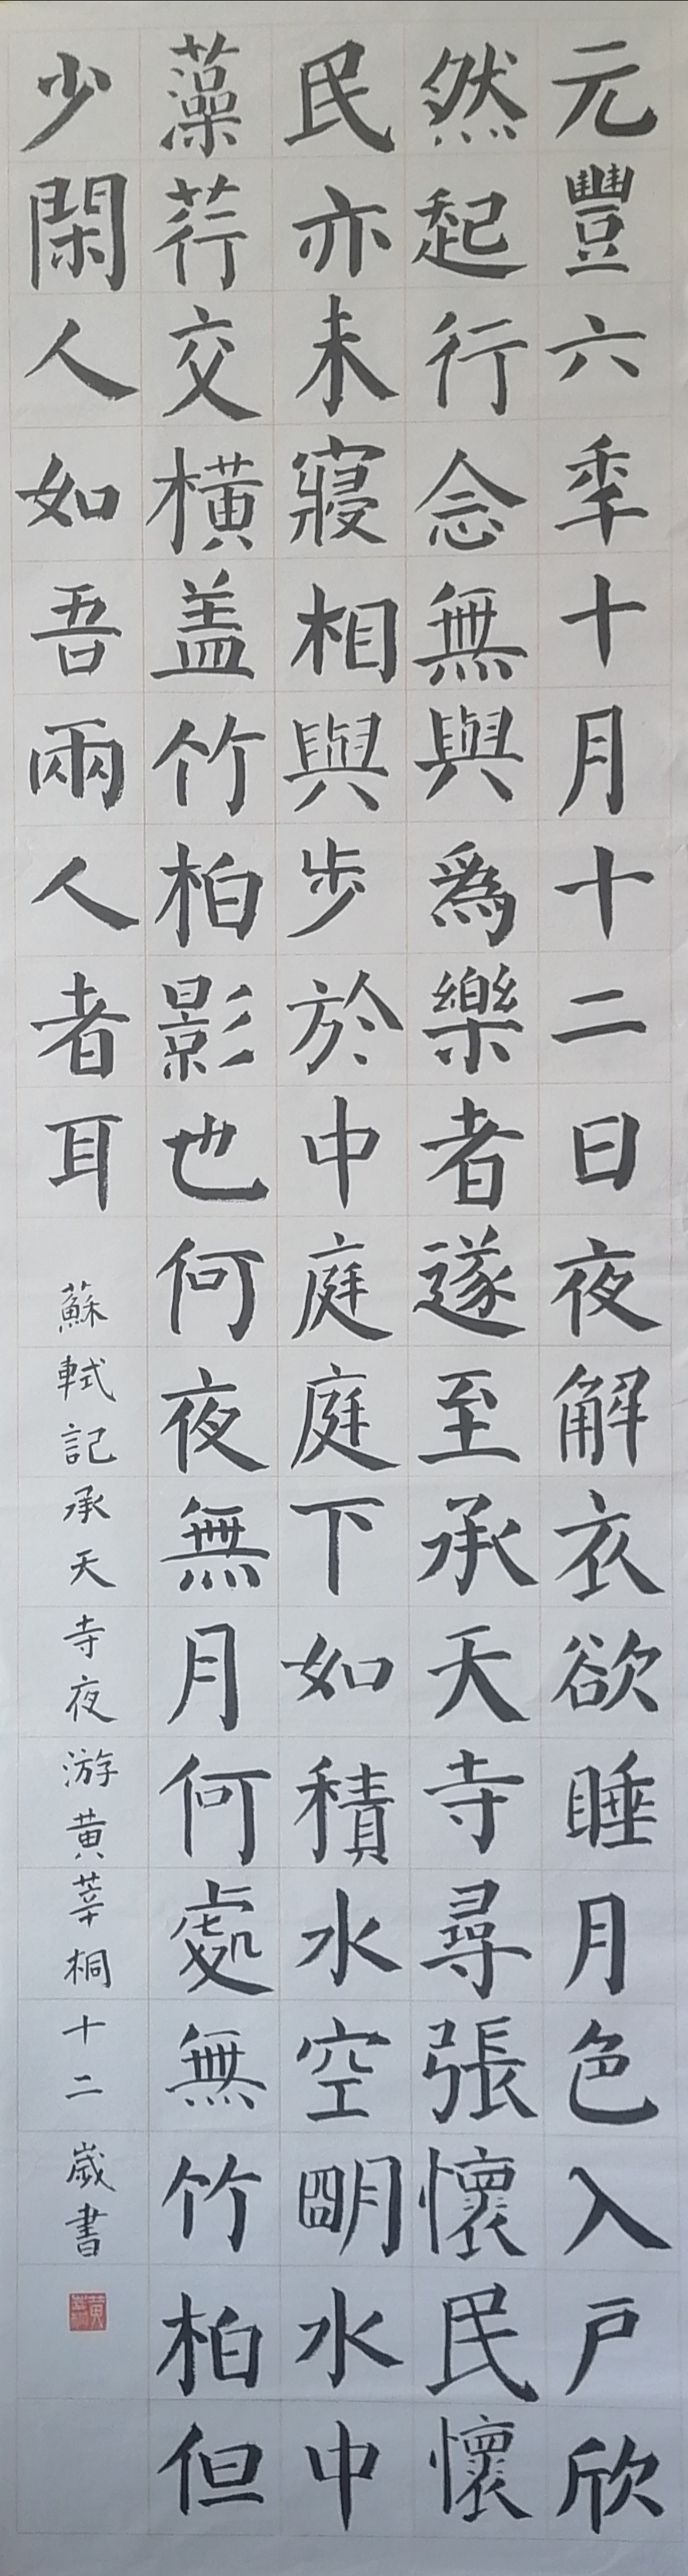 元豐六秊十月十二日夜解衣欲睡月色入戶欣
然起行念無與爲樂者遂至承天寺尋張懷民懷
民亦未寢相與步於中庭庭下如積水空朙水中
藻荇交橫盖竹柏影也何夜無月何處無竹柏但
少閑人如吾兩人者耳 蘇軾記承天寺夜游黄莘桐十二歲書